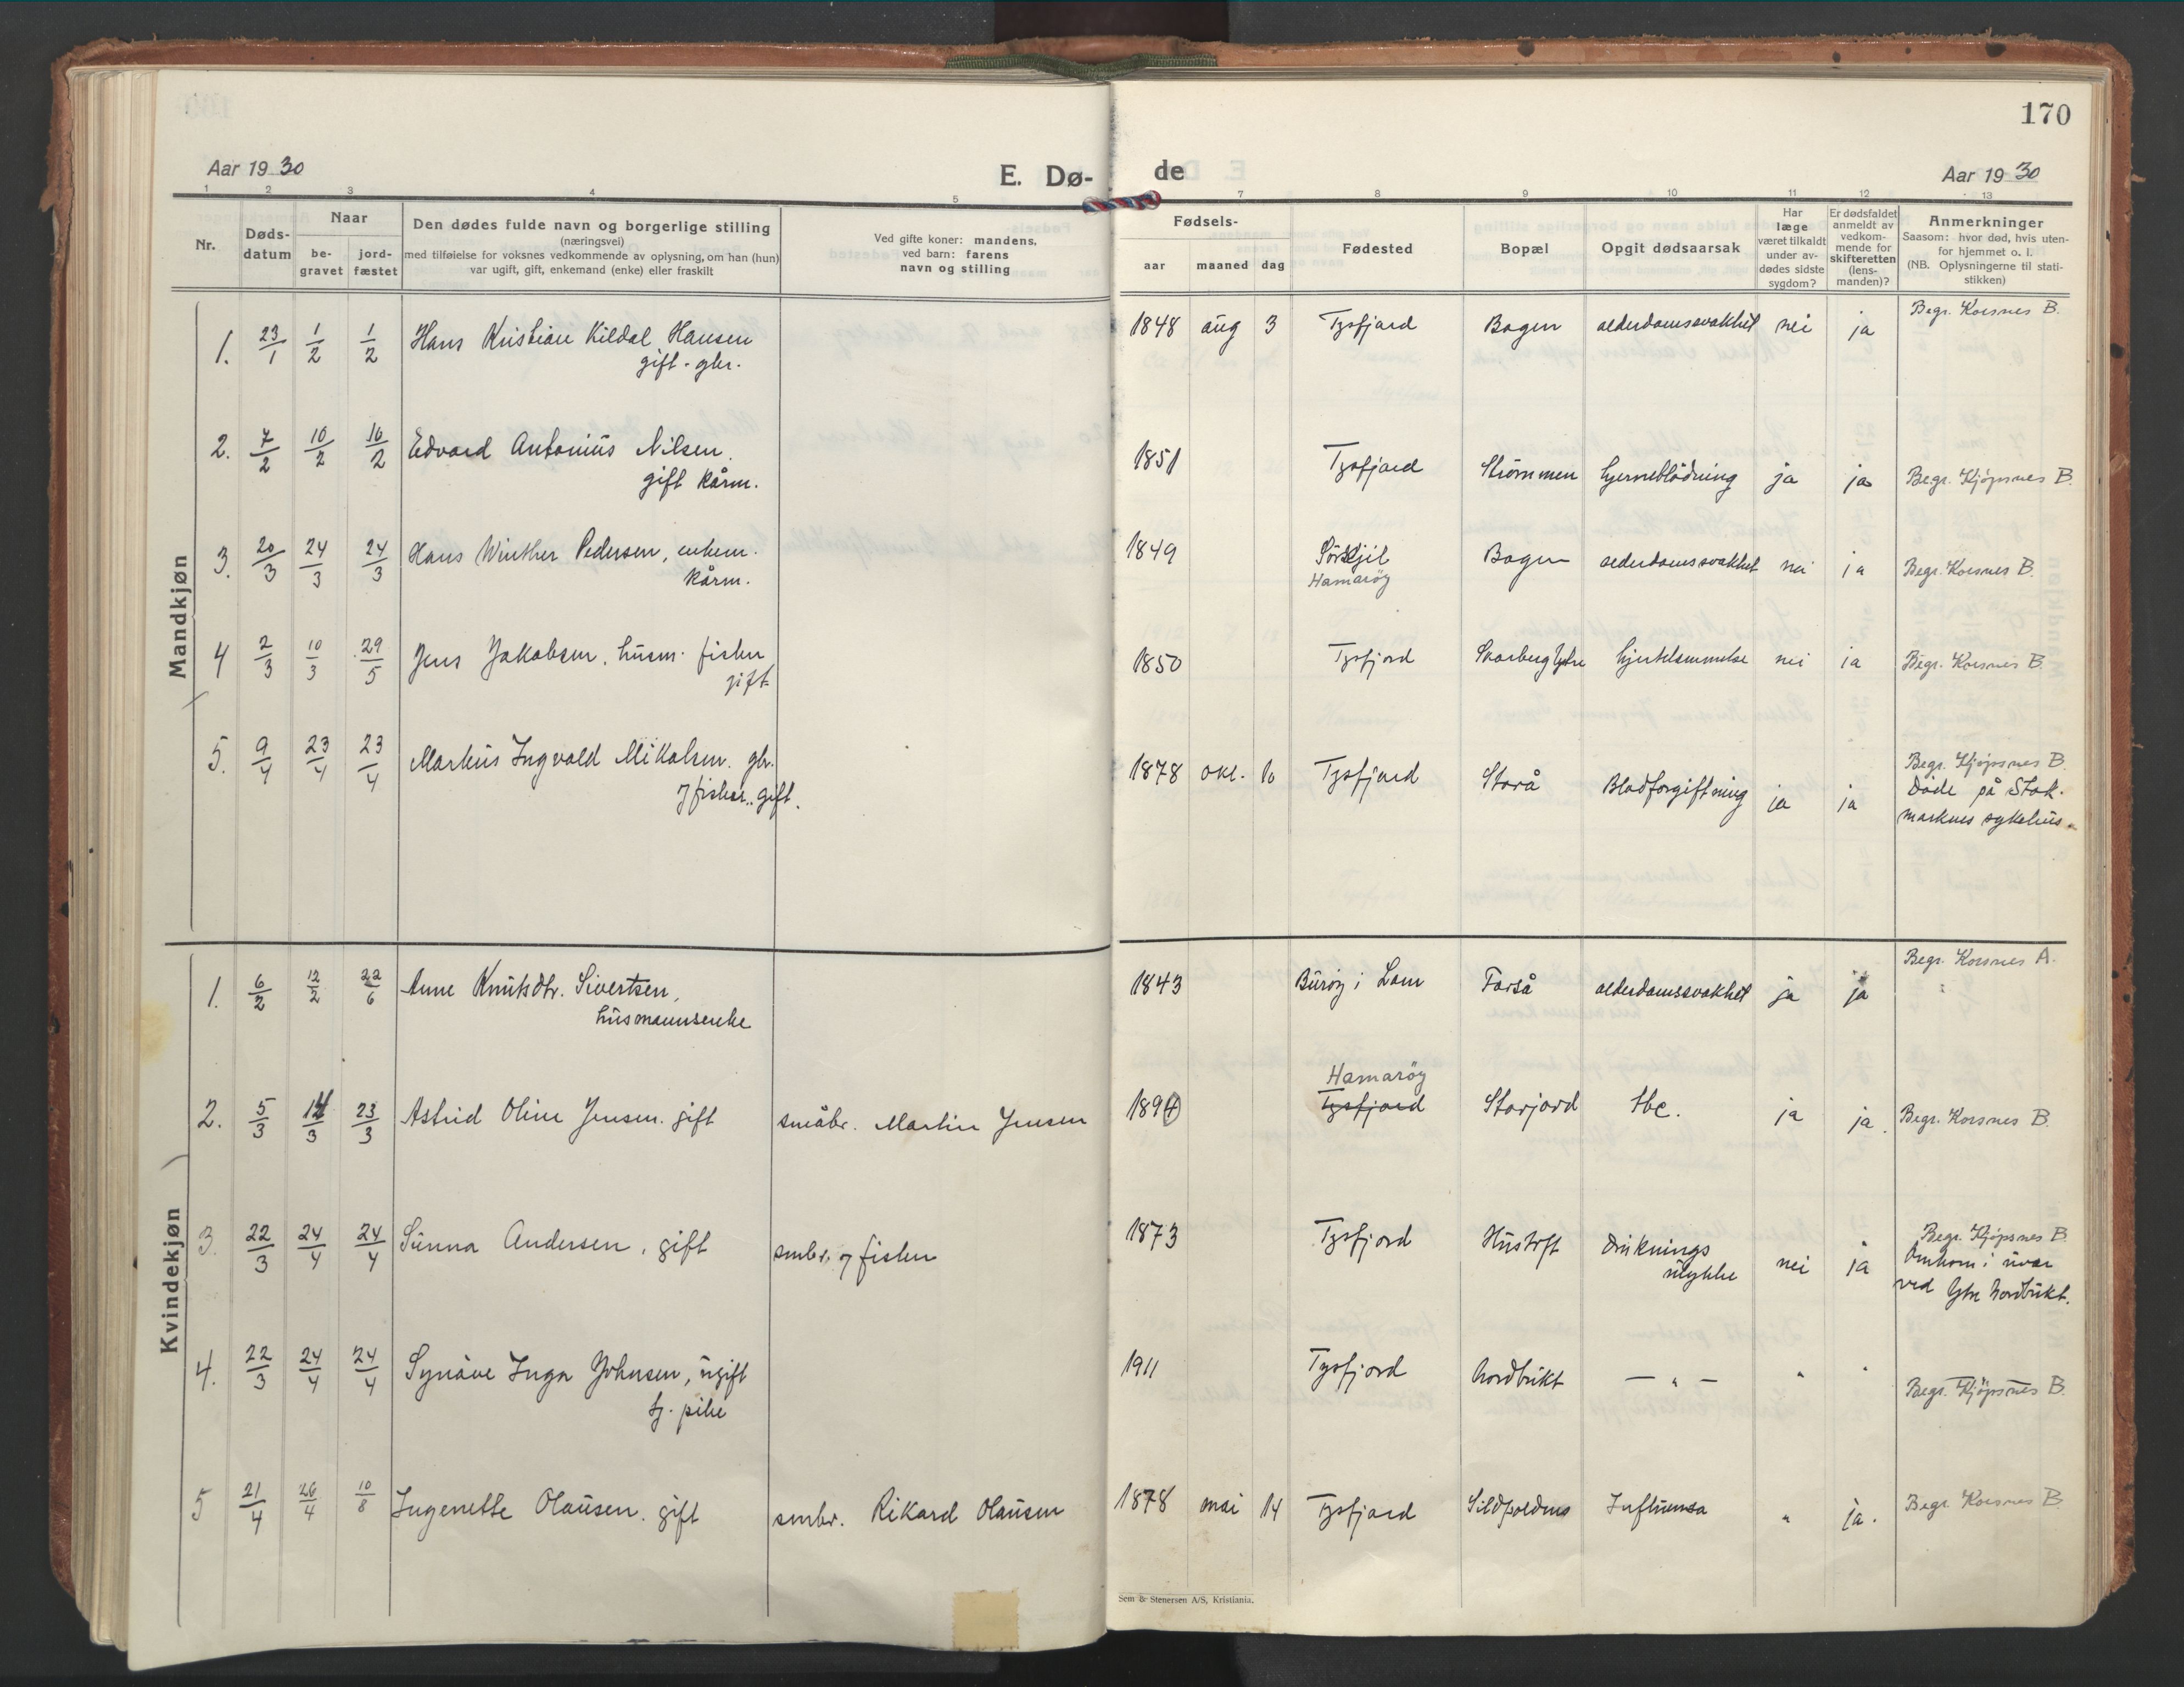 170
Aar 1930
E. Dø-
de
Aar 1930
1 2 3 4 5 7 8 9 10 11 12 13
Nr.
Døds-
datum
Naar
be-
gravet
jord-
fæstet
Den dødes fulde navn og borgerlige stilling
(næringsvei)
med tilføielse for voksnes vedkommende av oplysning, om han (hun)
var ugift, gift, enkemand (enke) eller fraskilt
Ved gifte koner: mandens,
ved barn: farens
navn og stilling
Fødsels-
aar maaned dag
Fødested
Bopæl
Opgit dødsaarsak
Har
læge
været tilkaldt
under av-
dødes sidste
sygdom?
Er dødsfaldet
anmeldt av
vedkom-
mende for
skifteretten
(lens-
manden)?
Anmerkninger
Saasom: hvor død, hvis uten-
for hjemmet o. l.
(NB. Oplysningerne til stati-
stikken)
Mandkjøn
1. 23/1 1/2 1/2 Hans Kristian Kildal Hansen 1848 aug 3 Tysfjord Bogen alderdomssvakhet nei ja Begr. Korsnes B.
gift. gbr.
2. 7/2 10/2 16/2 Edvard Antonius Nilsen. 1851 Tysfjord Strømmen hjerneblødning ja ja Begr. Kjöpsnes B.
gift kårm.
3. 20/3 24/3 24/3 Hans Winther Pedersen, enkem. 1849 Hamarøy Bogen alderdomssvakhet nei ja Begr. Korsnes B.
kårm.
4 2/3 10/3 29/5 Jens Jakobsen, husm. fisker 1850 Tysfjord hjertelammelse nei ja Begr. Korsnes B.
gift
5. 9/4 23/4 23/4 Markus Ingvald Mikalsen. gbr. 1878 okt. 10 Tysfjord Storå Blodforgiftning ja ja Begr. Kjöpsnes B.
og fisker. gift. Döde på Stok-
marknes sykehus.
Kvindekjøn
1. 6/2 12/2 22/6 Anne Knutsdtr. Sivertsen, 1843 i Lom Forså alderdomssvakhet ja ja Begr. Korsnes A.
husmannsenke
2. 5/3 14/3 23/3 Astrid Oline Jensen. gift småbr. Martin Jensen 1894 Hamarøy Tysfjord Storjord tbc. ja ja. Begr. Korsnes B.
3. 22/3 24/4 24/4 Sunna Andersen, gift smbr. og fisker 1873 Tysfjord Hustoft Druknings nei ja Begr. Kjöpsnes B
ulykke Omkom i uvær
ved Ytre Nordbukt.
4. 22/3 24/4 24/4 Synöve Inga Johnsen, ugift 1911 Tysfjord Nordbukt — „ — " " Begr. Kjöpsnes B.
tj. pike
5 21/4 26/4 10/8 Ingenette Olausen. gift smbr. Rikard Olausen 1878 mai 14 Tysfjord Influensa " ja. Begr. Korsnes B
Sem & Stenersen A/S, Kristiania.